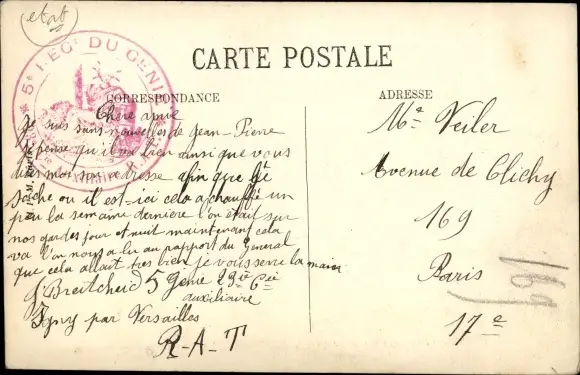 etat
CARTE POSTALE
5e REGt DU GENIE
CORRESPONDANCE
ADRESSE
Chère amie
je suis sans nouvelles de Jean-Pierre
je pense qu'il va bien ainsi que vous
dites moi son adresse afin que je
sache ou il est - ici cela a chauffé un
peu la semaine dernière l'on était sur
nos gardes jour et nuit maintenant cela
va l'on nous a lu au rapport du General
que cela allait très bien je vous serre la main
J Breitcheid 5 Genie 29e Cie
auxiliaire
Igny par Versailles
R-A-T
Me Veiler
Avenue de Clichy
169
Paris
17e
169